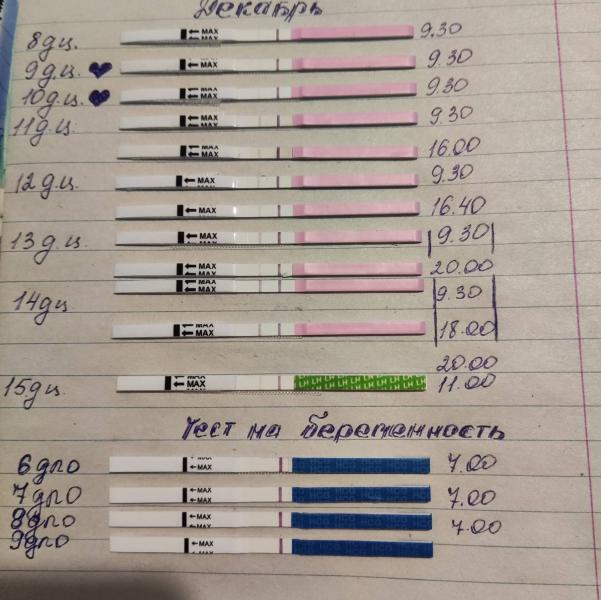 Декабрь
8дц. MAX 9.30
9дц. MAX 9.30
10дц. MAX 9.30
11дц MAX 9.30
MAX 16.00
12дц. MAX 9.30
MAX 16.40
13дц. MAX 9.30
MAX 20.00
14дц MAX 9.30
MAX MAX 18.00
20.00
15дц. MAX LH LH LH LH LH 11.00
Тест на беременность
6дпо MAX 7.00
7дпо MAX 7.00
8дпо MAX 7.00
9дпо MAX